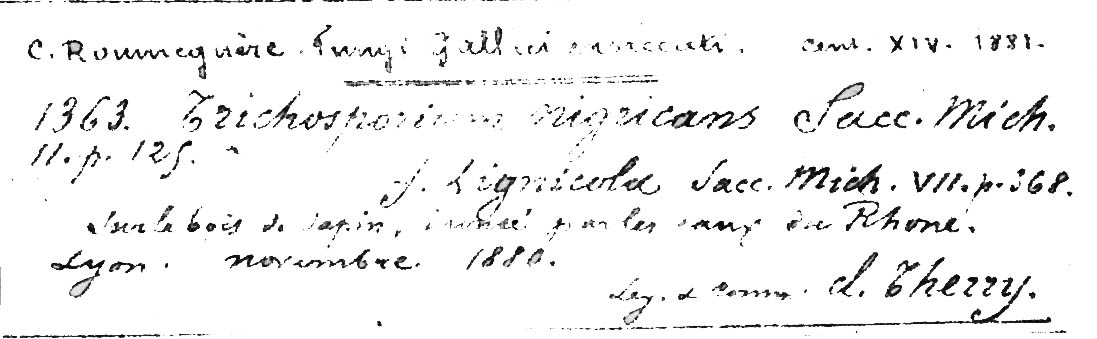 C. Roumeguère. Fungi Gallici exsiccati. Cent. XIV. 1881.
1363. Trichosporium nigricans Sacc. Mich.
II. p. 125.
f. Lignicola Sacc. Mich. VII. p. 368.
Sur le bois de sapin, inondé par les eaux du Rhone.
Lyon. novembre 1880.
Leg. & Comm. J. Therry.